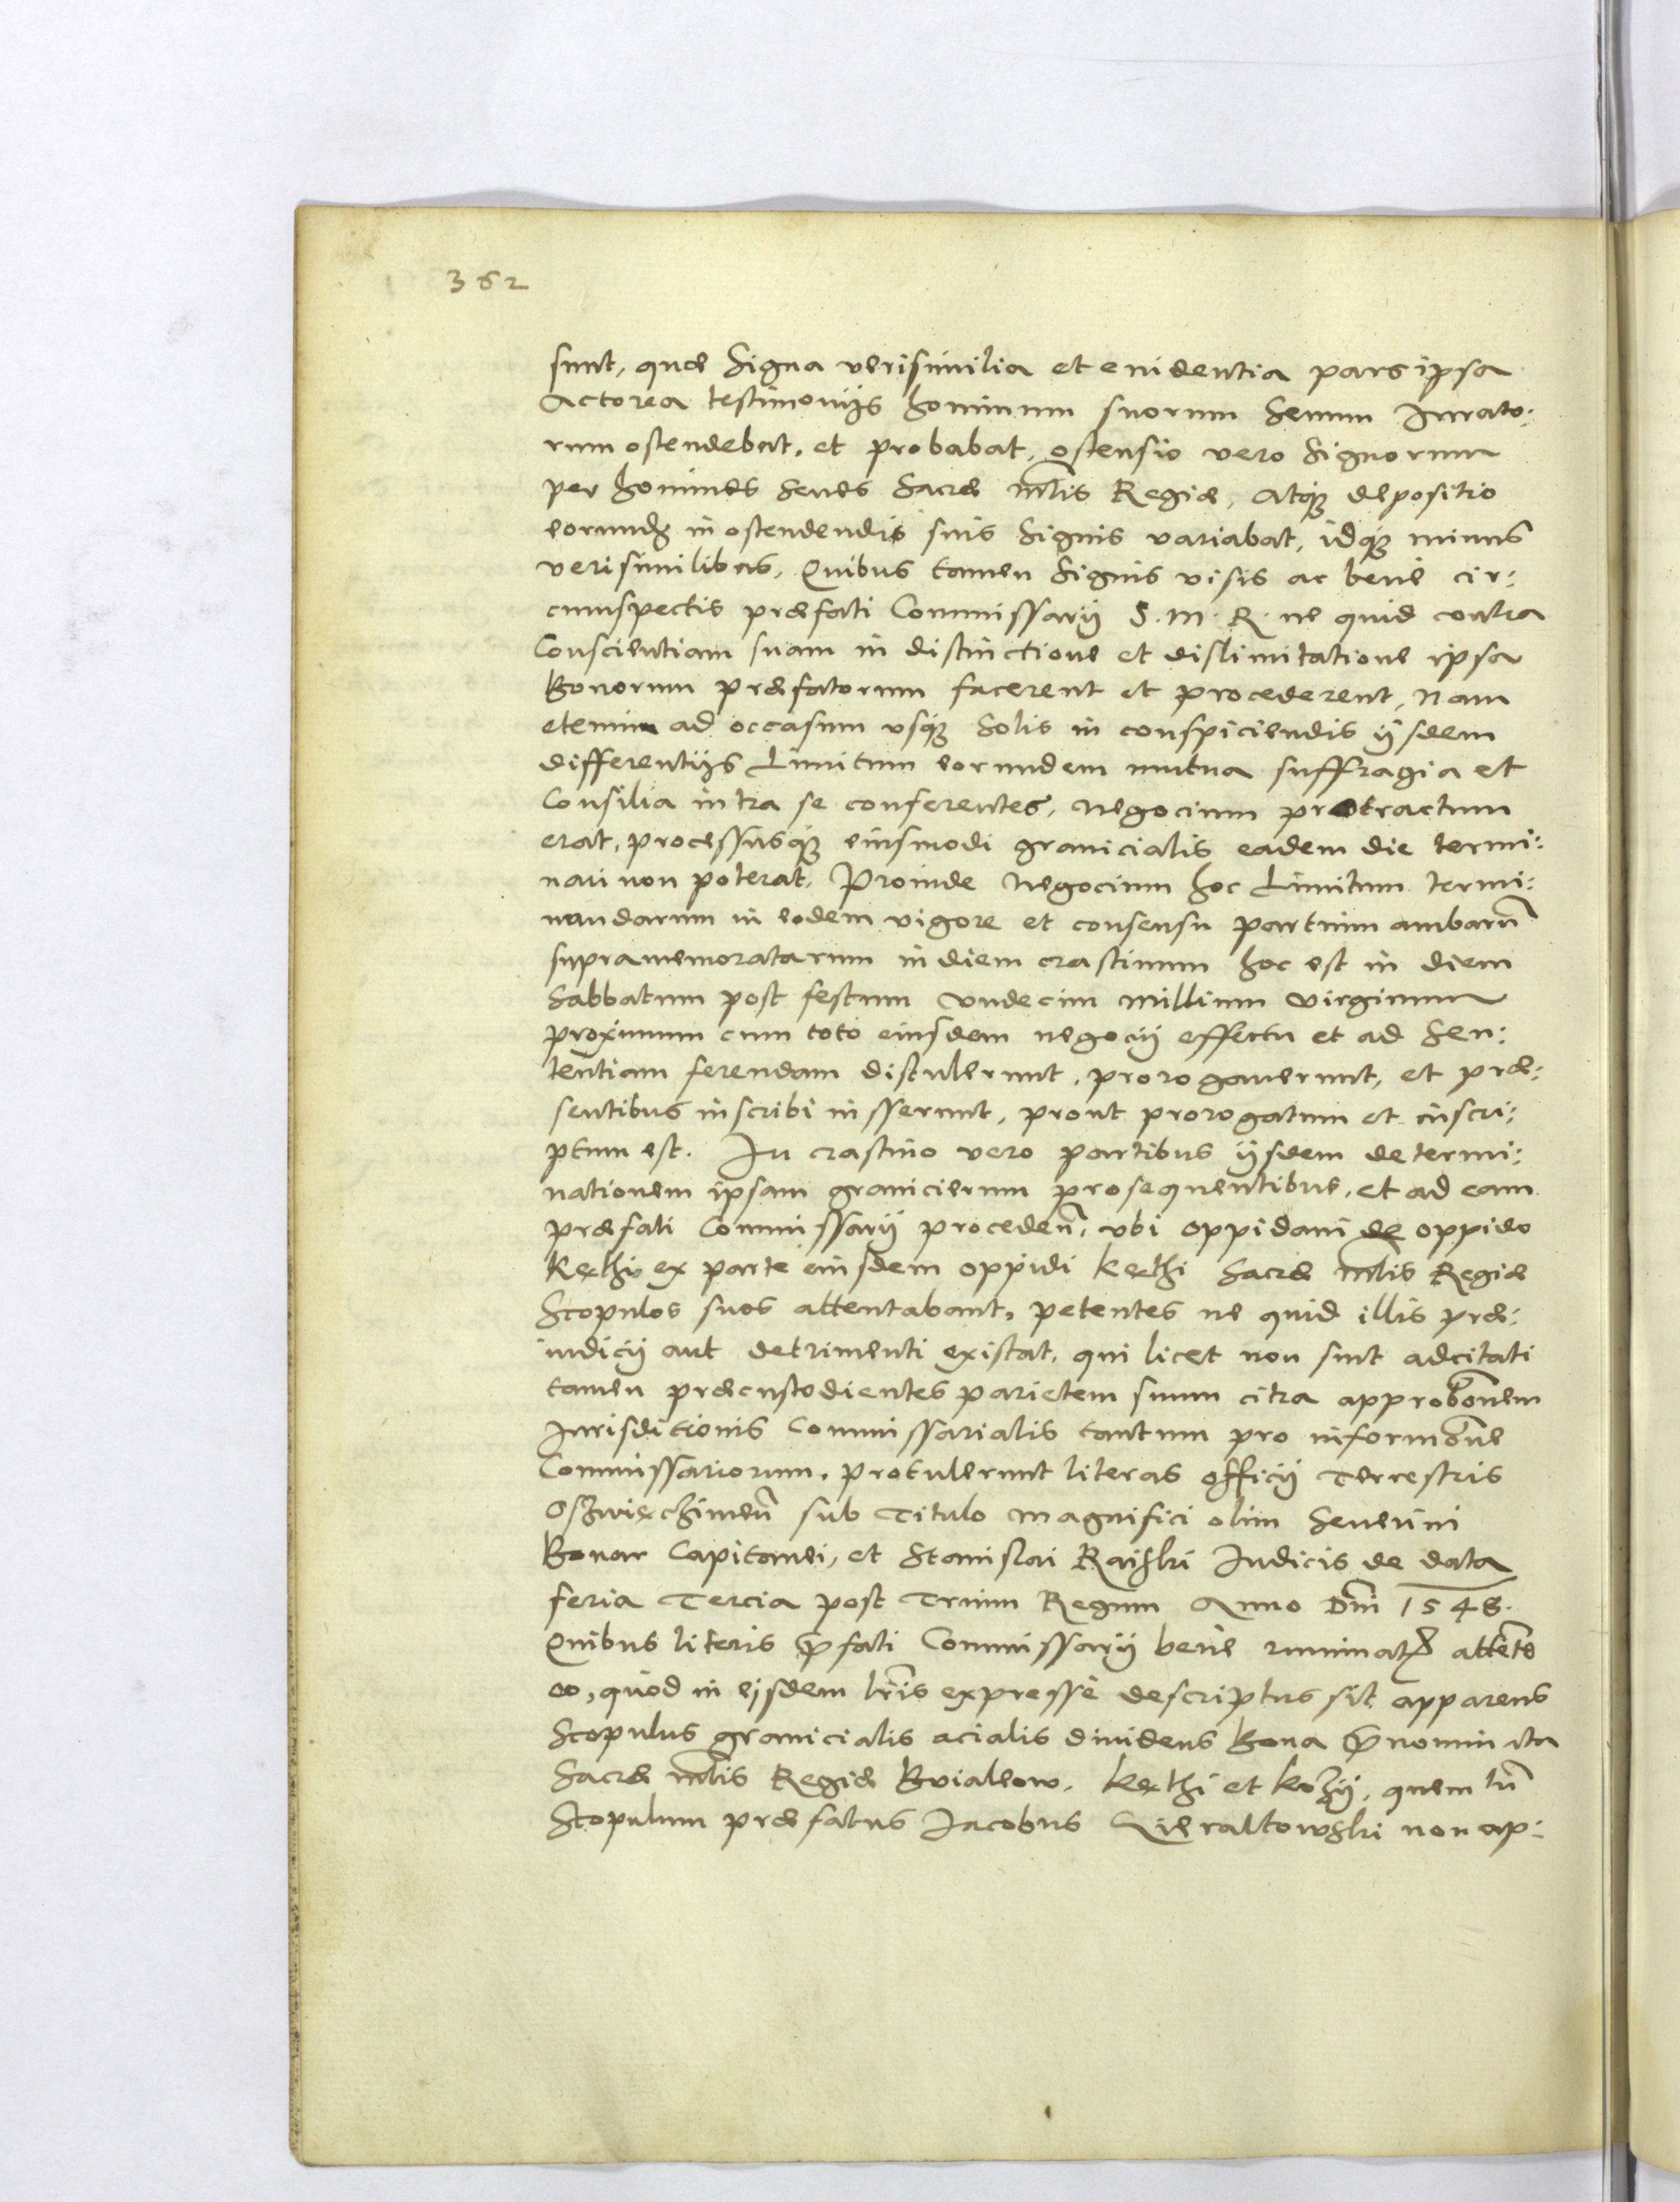 362
sunt, quæ Signa verisimilia et euidentia pars ipsa
Actorea testimonijs hominum suorum Senum Iurato:
rum ostendebat, et probabat, ostensio vero Signorum
per homines Senes Sacræ Mtis Regiæ, Atq depositio
eorundẽ in ostendendis suis Signis variabat, idq minus
verisimilibus, Quibus tamen Signis visis ac bene cir:
cumspectis præfati Commissarij S. M. R. ne quid contra
Conscientiam suam in distinctione et dislimitatione ipsa
Bonorum præfatorum facerent et procederent, Nam
etenim ad occasum vsq Solis in conspiciendis ijsdem
differentijs Limitum eorundem mutua suffragia et
Consilia intra se conferentes, Negocium protractum
erat, processusq eiusmodi granicialis eadem die termi:
nari non poterat, Proinde Negocium hoc Limitum termi:
nandarum in eodem vigore et consensu partium ambarũ
supramemoratarum in diem crastinum hoc est in diem
Sabbatum post festum Vndecim Millium Virginum
proximum cum toto eiusdem negocij effectu et ad Sen:
tentiam ferendam distulerunt, prorogauerunt, et præ:
sentibus inscribi iusserunt, prout prorogatum et inscri:
ptum est. In crastino vero partibus ijsdem determi:
nationem ipsam granicierum prosequentibus, et ad eam
præfati Commissarij procedeñ, vbi oppidani de oppido
Kethi ex parte eiusdem oppidi Kethi Sacræ Mtis Regiæ
Scopulos suos attentabant, petentes ne quid illis præ:
iudicij aut detrimenti existat, qui licet non sint adcitati
tamen præcustodientes parietem suum citra approbõnem
Iurisditionis Commissarialis tantum pro informõne
Commissariorum, protulerunt literas officij Terrestris
Oszwięczimeñ sub Titulo Magnifici olim Seuerini
Bonar Capitanei, et Stanislai Raiski Iudicis de data
feria Tercia post Trium Regum Anno Dñi 1548.
Quibus literis p̃fati Commissarij bene ruminatis attẽte
eo, quod in eijsdem lr̃is expressè descriptus sit apparens
Scopulus granicialis acialis diuidens Bona p̃nominata
Sacræ Mtis Regiæ Bvialeow, Kethi et Kozij, quem tñ
Scopulum præfatus Iacobus Gieraltowski non ap: